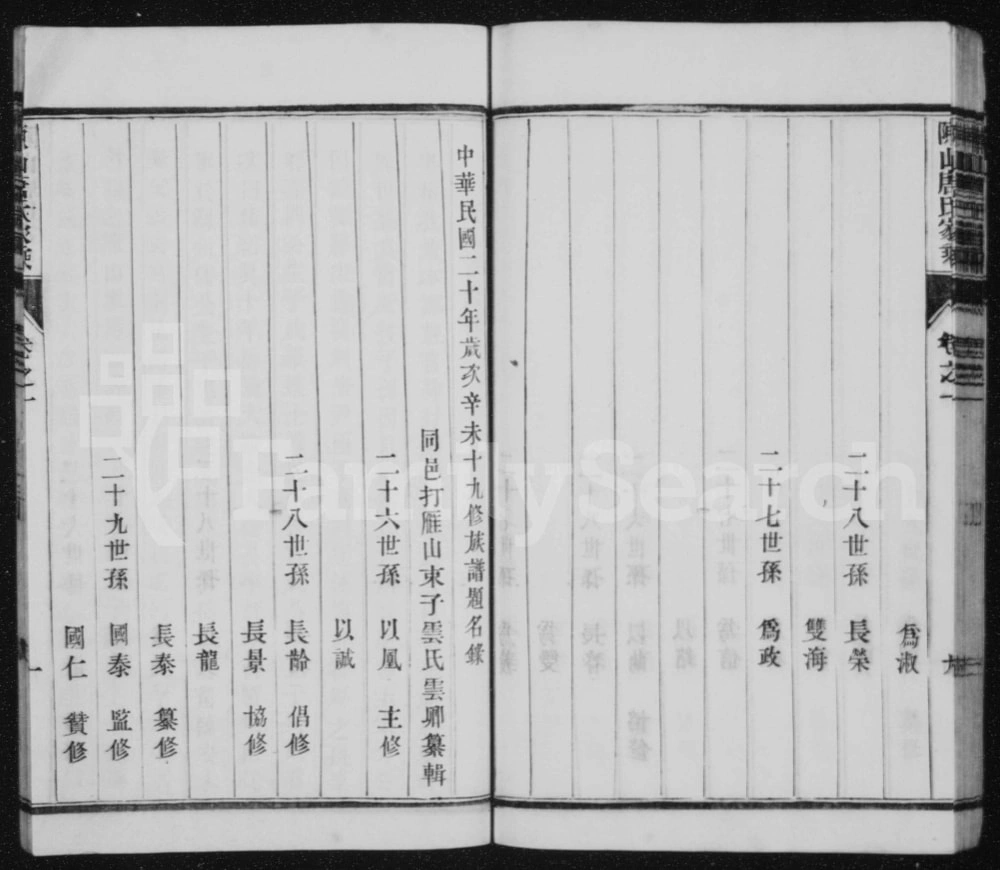 山唐氏家乘
卷之一
為淑
二十八世孫 長榮
雙海
二十七世孫 為政
中華民國二十年歲次辛未十九修族譜題名錄
同邑打雁山東子雲氏雲卿纂輯
二十六世孫 以鳳 主修
以誠
二十八世孫 長齡 倡修
長景 協修
長龍
長泰 纂修
二十九世孫 國泰 監修
國仁 贊修
卷之一
一
FamilySearch